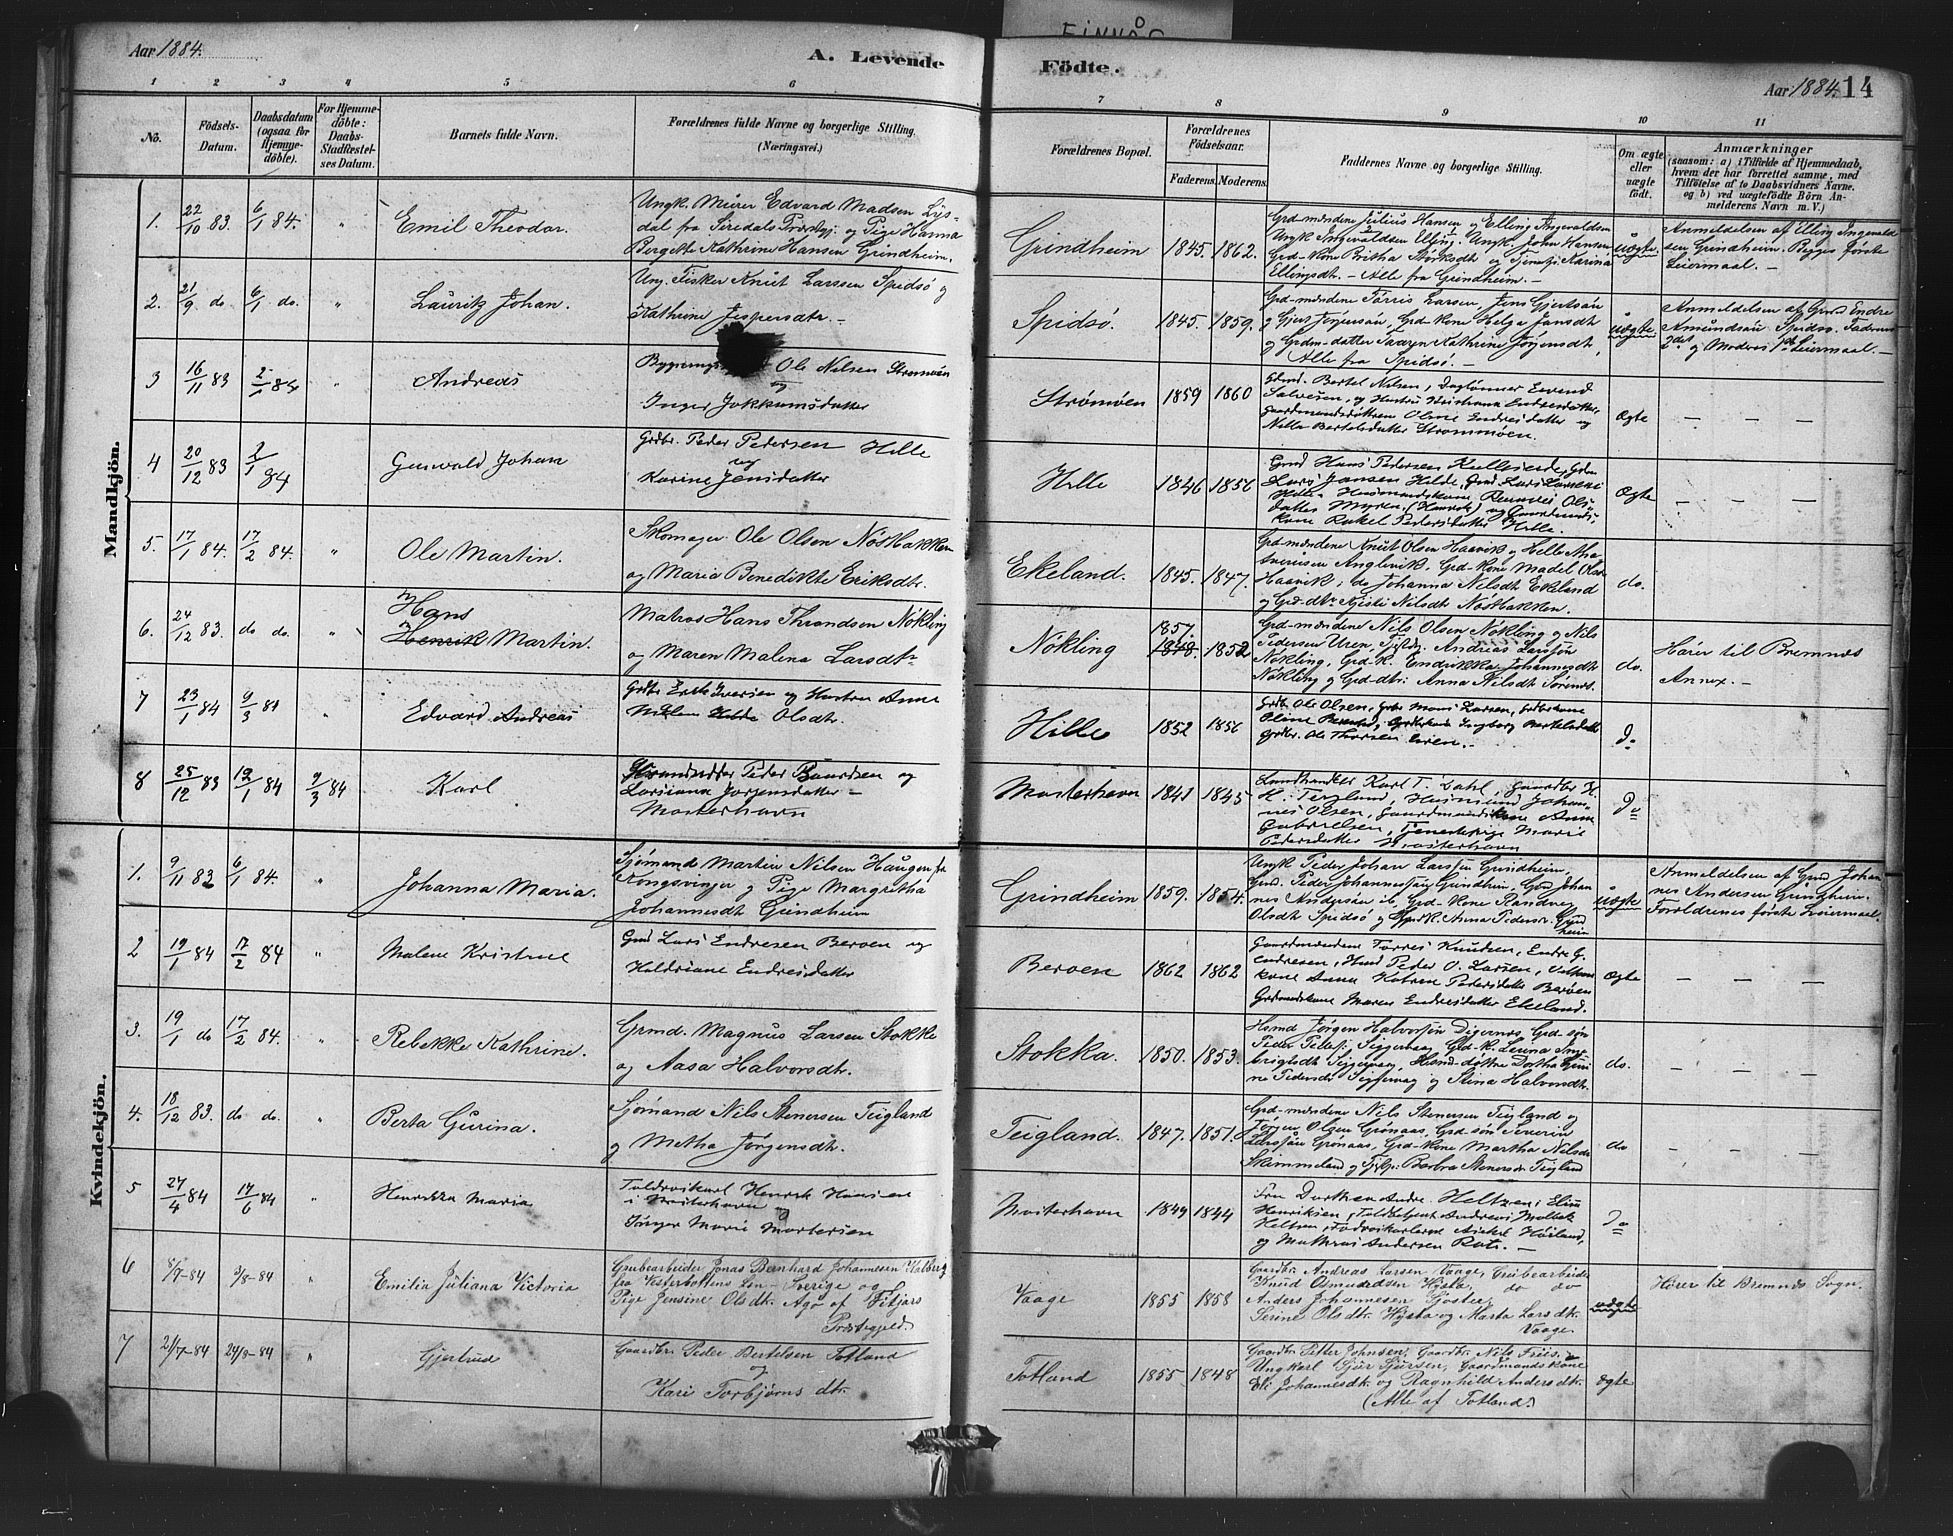 FINNÅS
Aar 1884.
A. Levende
Födte.
Aar 1884. 14
1 2 3 4 5 6 7 8 9 10 11
No.
Födsels-Datum.
Daabsdatum (ogsaa for Hjemme-döbte).
For Hjemme-döbte: Daabs-Stadfæstel-ses Datum.
Barnets fulde Navn.
Forældrenes fulde Navne og borgerlige Stilling.
(Næringsvei.)
Forældrenes Bopæl.
Forældrenes Födselsaar.
Faderens. Moderens.
Faddernes Navne og borgerlige Stilling.
Om ægte eller uægte födt.
Anmærkninger
(saasom: a) i Tilfælde af Hjemmedaab,
hvem der har forrettet samme, med
Tilföielse af to Daabsvidners Navne.
og b) ved uægtefödte Börn An-
melderens Navn m. V.)
Mandkjön.
1. 22/10 83 6/1 84. " Emil Theodor.
Ungk. Murer Edvard Madsen Lys-
dal fra Siredals Præstgj. og Pige Hanna
Bergitte Kathrine Hansen Grindheim.
Grindheim 1845. 1862.
Grd-mændene Julius Hansen og Elling Ingvaldsen
Ungk Ingvaldsen Elling. Ungk. John Hansen
Grd-kone Britha Størksdt og Tjenestp. Karina
Ellingsdt. – Alle fra Grindheim. –
uægte
Anmeldelsen af Elling Ingvald
sen Grindheim. Begges første
Leiermaal. –
2. 21/9 do 6/1 do. " Lauritz Johan.
Ung. Fisker Knut Larssen Spidsø og
Kathrine Jespersdtr. –
Spidsø. 1845. 1859.
Grd-mændene Tørris Larsen, Jens Gjertsøn
og Gjert Jørgensøn, Grd-kone Helga Jansdt
og Grdm-datter Kathrine Jørgensdt,
Alle fra Spidsø. –
uægte
Anmeldelsen af Gmd Endre
Amundsøn Spidsø. Faderens
2det og Moderens 1ste Leiermaal. –
3 16/11 83 2/1 84 " Andreas
Bygnings Ole Nilsen Strømøen
og
Inger Jokkumsdatter
Strømøen 1859 1860
Gdmd. Bertel Nilsen, Daglønner Eevend
Salvesen, og Hustru Kristiana Endresdatter,
Gaardmandsdøttrene Oline Endresdatter og
Nille Bertelsdatter Strømmøen.
Ægte – – –
4 20/12 83 2/1 84 Gunvald Johan
Grdbr. Peder Pedersen Hille
og
Karine Jensdatter
Hille 1846 1856
Gmd Hans Pedersen Kulleseide, Gdm
Lars Jansen Hilde, Gmd Lars Larsen
Hille Husmandskone Ols
datter Myren (Haavik) og Gaardmands-
kone Rakel Pedersdatter Hille
Ægte – – –
5. 17/1 84. 17/2 84. " Ole Martin.
Skomager Ole Olsen Nøstbakken
og Maria Benedikte Eriksdtr.
Ekeland. 1845. 1847.
Grd-mændene Knut Olsen Haavik og Helle
Anglevik, Grd-kone Madel Olsdt
Haavik, do Johanna Nilsdt Ekeland
og Grd-dtr Kjisti Nilsdt Nøstbakken.
do.
6. 24/12 83. do do. " Hans
Henrik Martin.
Matros Hans Throndsen Nøkling
og Maren Malena Larsdtr
Nøkling 1857. 1848. 1852
Grd-mændene Nils Olsen Nøkling og Nils
Pedersen Uren, Fiskr. Andreas Larssøn
Nøkling. Grd-k. Endrikka Johannesdt
Nøkling og Grd-dtr: Anna Nilsdt Sørenes.
do.
Hører til Bremnæs
Annex. –
7 23/1 84 9/3 84 " Edvard Andreas
Grdbr Erik Iversen og Hustru Anne
Hilde Olsdtr.
Hille 1852 1856
Grdb. Ole Olsen, Grdbr Mons Larsen, Grdbrkone
Oline, Grdbrkone Ingborg Bertelsdatter
Grdbr. Ole Thorsen Uren. –
do
8 25/12 83 12/1 84 9/3 84 Karl
Peder Baardsen og
Larsiana Jørgensdatter –
Mosterhavn
Mosterhavn 1841 1845
Landhandler Karl T. Dahl, Gaardbr K.
H. Teigland, Husmand Johan-
nes Olsen, Gaardmandskone Anna
Gabrielsen, Tjenestepige Marie
Pedersdatter Mosterhavn
Do
Kvindekjön.
1. 9/11 83 6/1 84. " Johanna Maria.
Sjømand Martin Nilsen Haugen fr
Kongsvinger og Pige Margretha
Johannesdt Grindheim
Grindheim 1859. 1854.
Ungk Peder Johan Larssen Grindheim,
Gmd. Peder Johannessøn Grindheim, Gmd Johan
nes Andersøn ib, Grd-kone Randvei
Olsdt Spidsø og Anna Pedersdtr Grind
heim
uægte
Anmeldelsen af Gmd Johan
nes Andersen Grindheim.
Forældrenes første Leiermaal.
2 19/1 84 17/2 84 " Malene Kristine
Gmd Lars Endresen Berøen og
Heldriane Endresdatter
Berøen 1862 1862
Gaardmændene Tørres Knudsen, Endre G.
Endresen, Hmd Peder O. Larsen,
kone Anna Katrine Pedersdatter Berøen
Grdmandskone Maren Endresdatter Ekeland.
Ægte – – –
3. 19/1 do 17/2 84. " Rebekke Kathrine.
Grmd. Magnus Larsen Stokke
og Aasa Halvorsdtr.
Stokka. 1850. 1853.
Hsmd Jørgen Halvorsøn Digernes, Grd-søn
Peder Peders: Siggervaag, Grd-k. Lerina Ing
brigtsdt Siggervaag, Hsmd-døttre Dortha Guri
ne Pedersdt Siggervag og Stina Halvorsdt.
do. – – –
4. 18/12 83. do do. " Berta Gurina.
Sjømand Nils Stenersen Teigland
og Metha Jørgensdt.
Teigland. 1847. 1851.
Grd-mændene Nils Stenersen Teigland og
Jørgen Olsen Grønaas, Grd-søn Severin
Larssøn Grønaas, Grd-kone Martha Nilsdt
Skimmeland og Tjp: Barbra Stenersdt Teigland
do – – –
5 27/4 84 17/6 84 " Henrikka Maria
Toldroikarl Henrik Hansen
i Mosterhavn og
Inger Marie Mortensen
Mosterhavn 1849 1844
Fru Dorthea Andre. Heltzen, Elisa
Henriksen, Toldbetjent Andreas Moltek
Heltzen, Toldroikarlene Askel Høiland,
og Mathias Andersen Røtt. –
Do
6 8/7-84 3/8-84 " Emilia Juliana Victoria
Grubearbeider Jonas Bernhard Johannesen Kalberg
fra Vesterbottens Len – Sverige og
Pige Jensine Olsdtr. Agø af Fitjars
Præstegjeld.
Vaage 1855 1858
Gaardbr. Andreas Larsen Vaage, Grubearbeider
Knud Osmundsen Hysta, do do
Anders Johannesen Sjøster,
Serine Olsdtr. Hysta og Marta Larsdtr.
Vaage
uægte
Hører til Bremnæs Sogn.
7 21/7-84 24/8-84 " Gjertrud
Gaardbr. Peder Bertelsen Totland
og
Kari Torbjørnsdtr.
Totland 1855 1848
Gaardbr. Peter Johnsen, Gaardbr. Nils Friis,
Ungkarl Sjur Sjursen, Gaardmandskone
Eli Johannesdtr. og Ragnhild Andersdtr.
(Alle af Totland.)
ægte